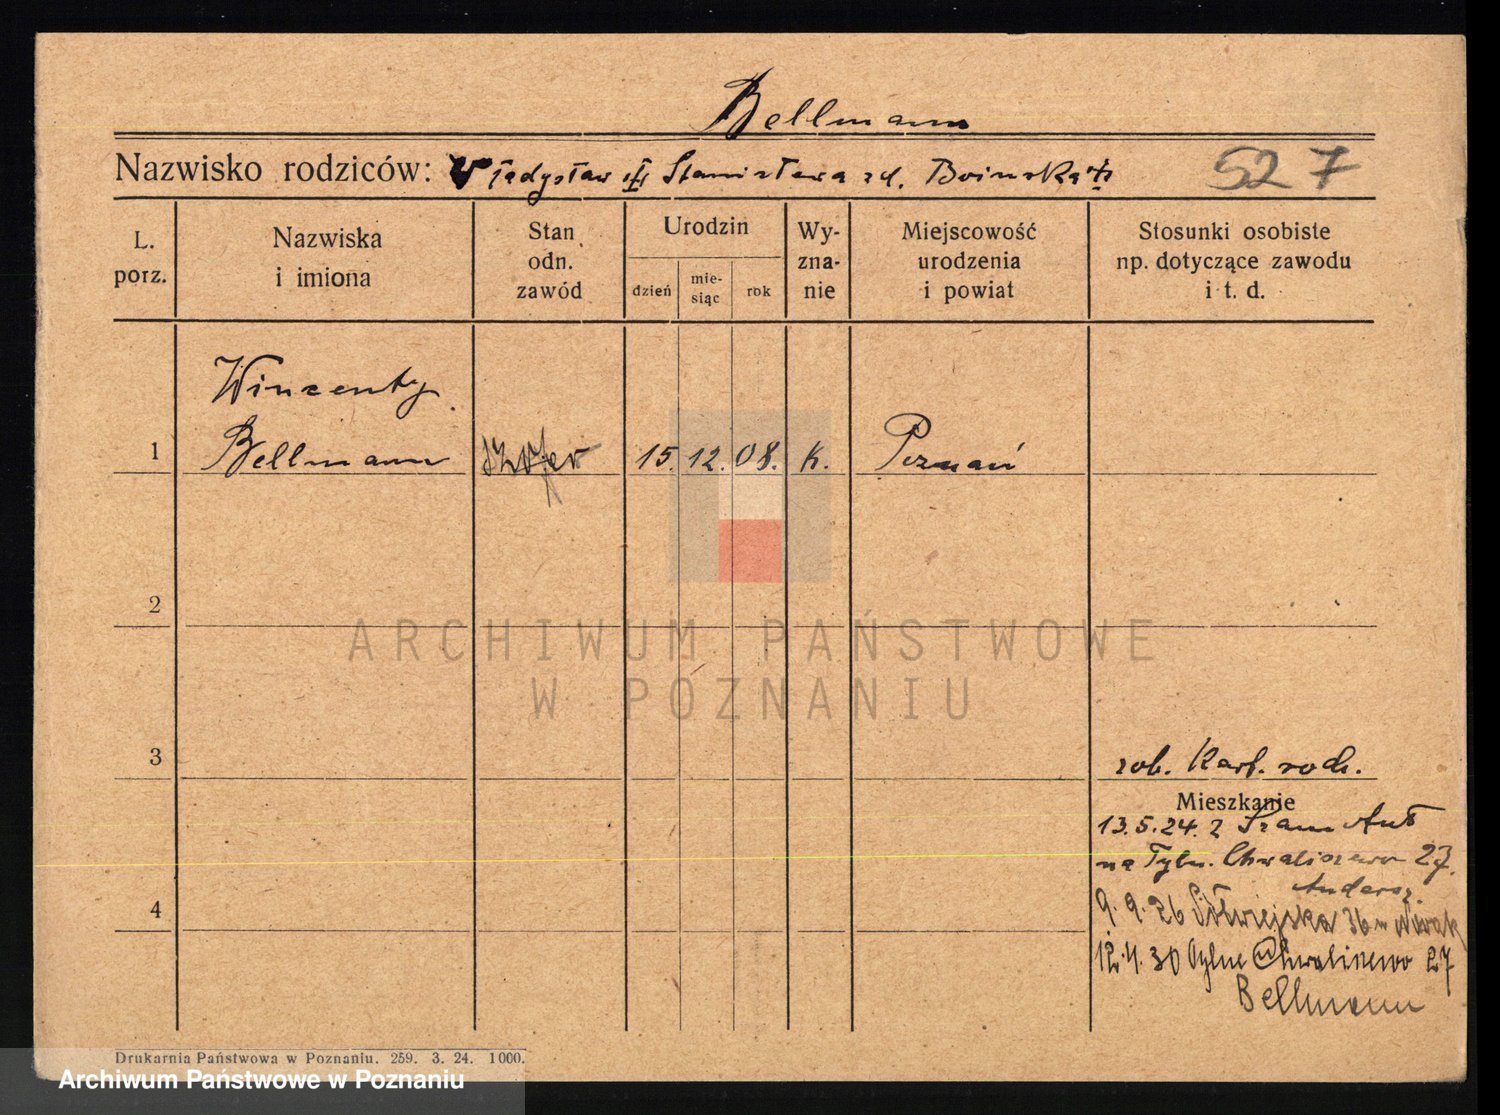 Bellmann
Nazwisko rodziców: Władysław Stanisława zd. Boinska 527
L. porz.
Nazwiska i imiona
Stan odn. zawód
Urodzin
dzień
mie-siąc
rok
Wy-zna-nie
Miejscowość urodzenia i powiat
Stosunki osobiste np. dotyczące zawodu i t. d.
Winzenty
1 Bellmann szofer 15. 12. 08. k. Poznań
2
ARCHIWUM PAŃSTWOWE
W POZNANIU
3
rob. Karf. rodz.
Mieszkanie
13.5.24. z
na Tyln. Chwaliszewo 27.
4
9.9.26 Półwiejska 36 m Nowak
12.4.30 Tylne Chwaliszewo 27
Bellmann
Drukarnia Państwowa w Poznaniu. 259. 3. 24. 1000.
Archiwum Państwowe w Poznaniu